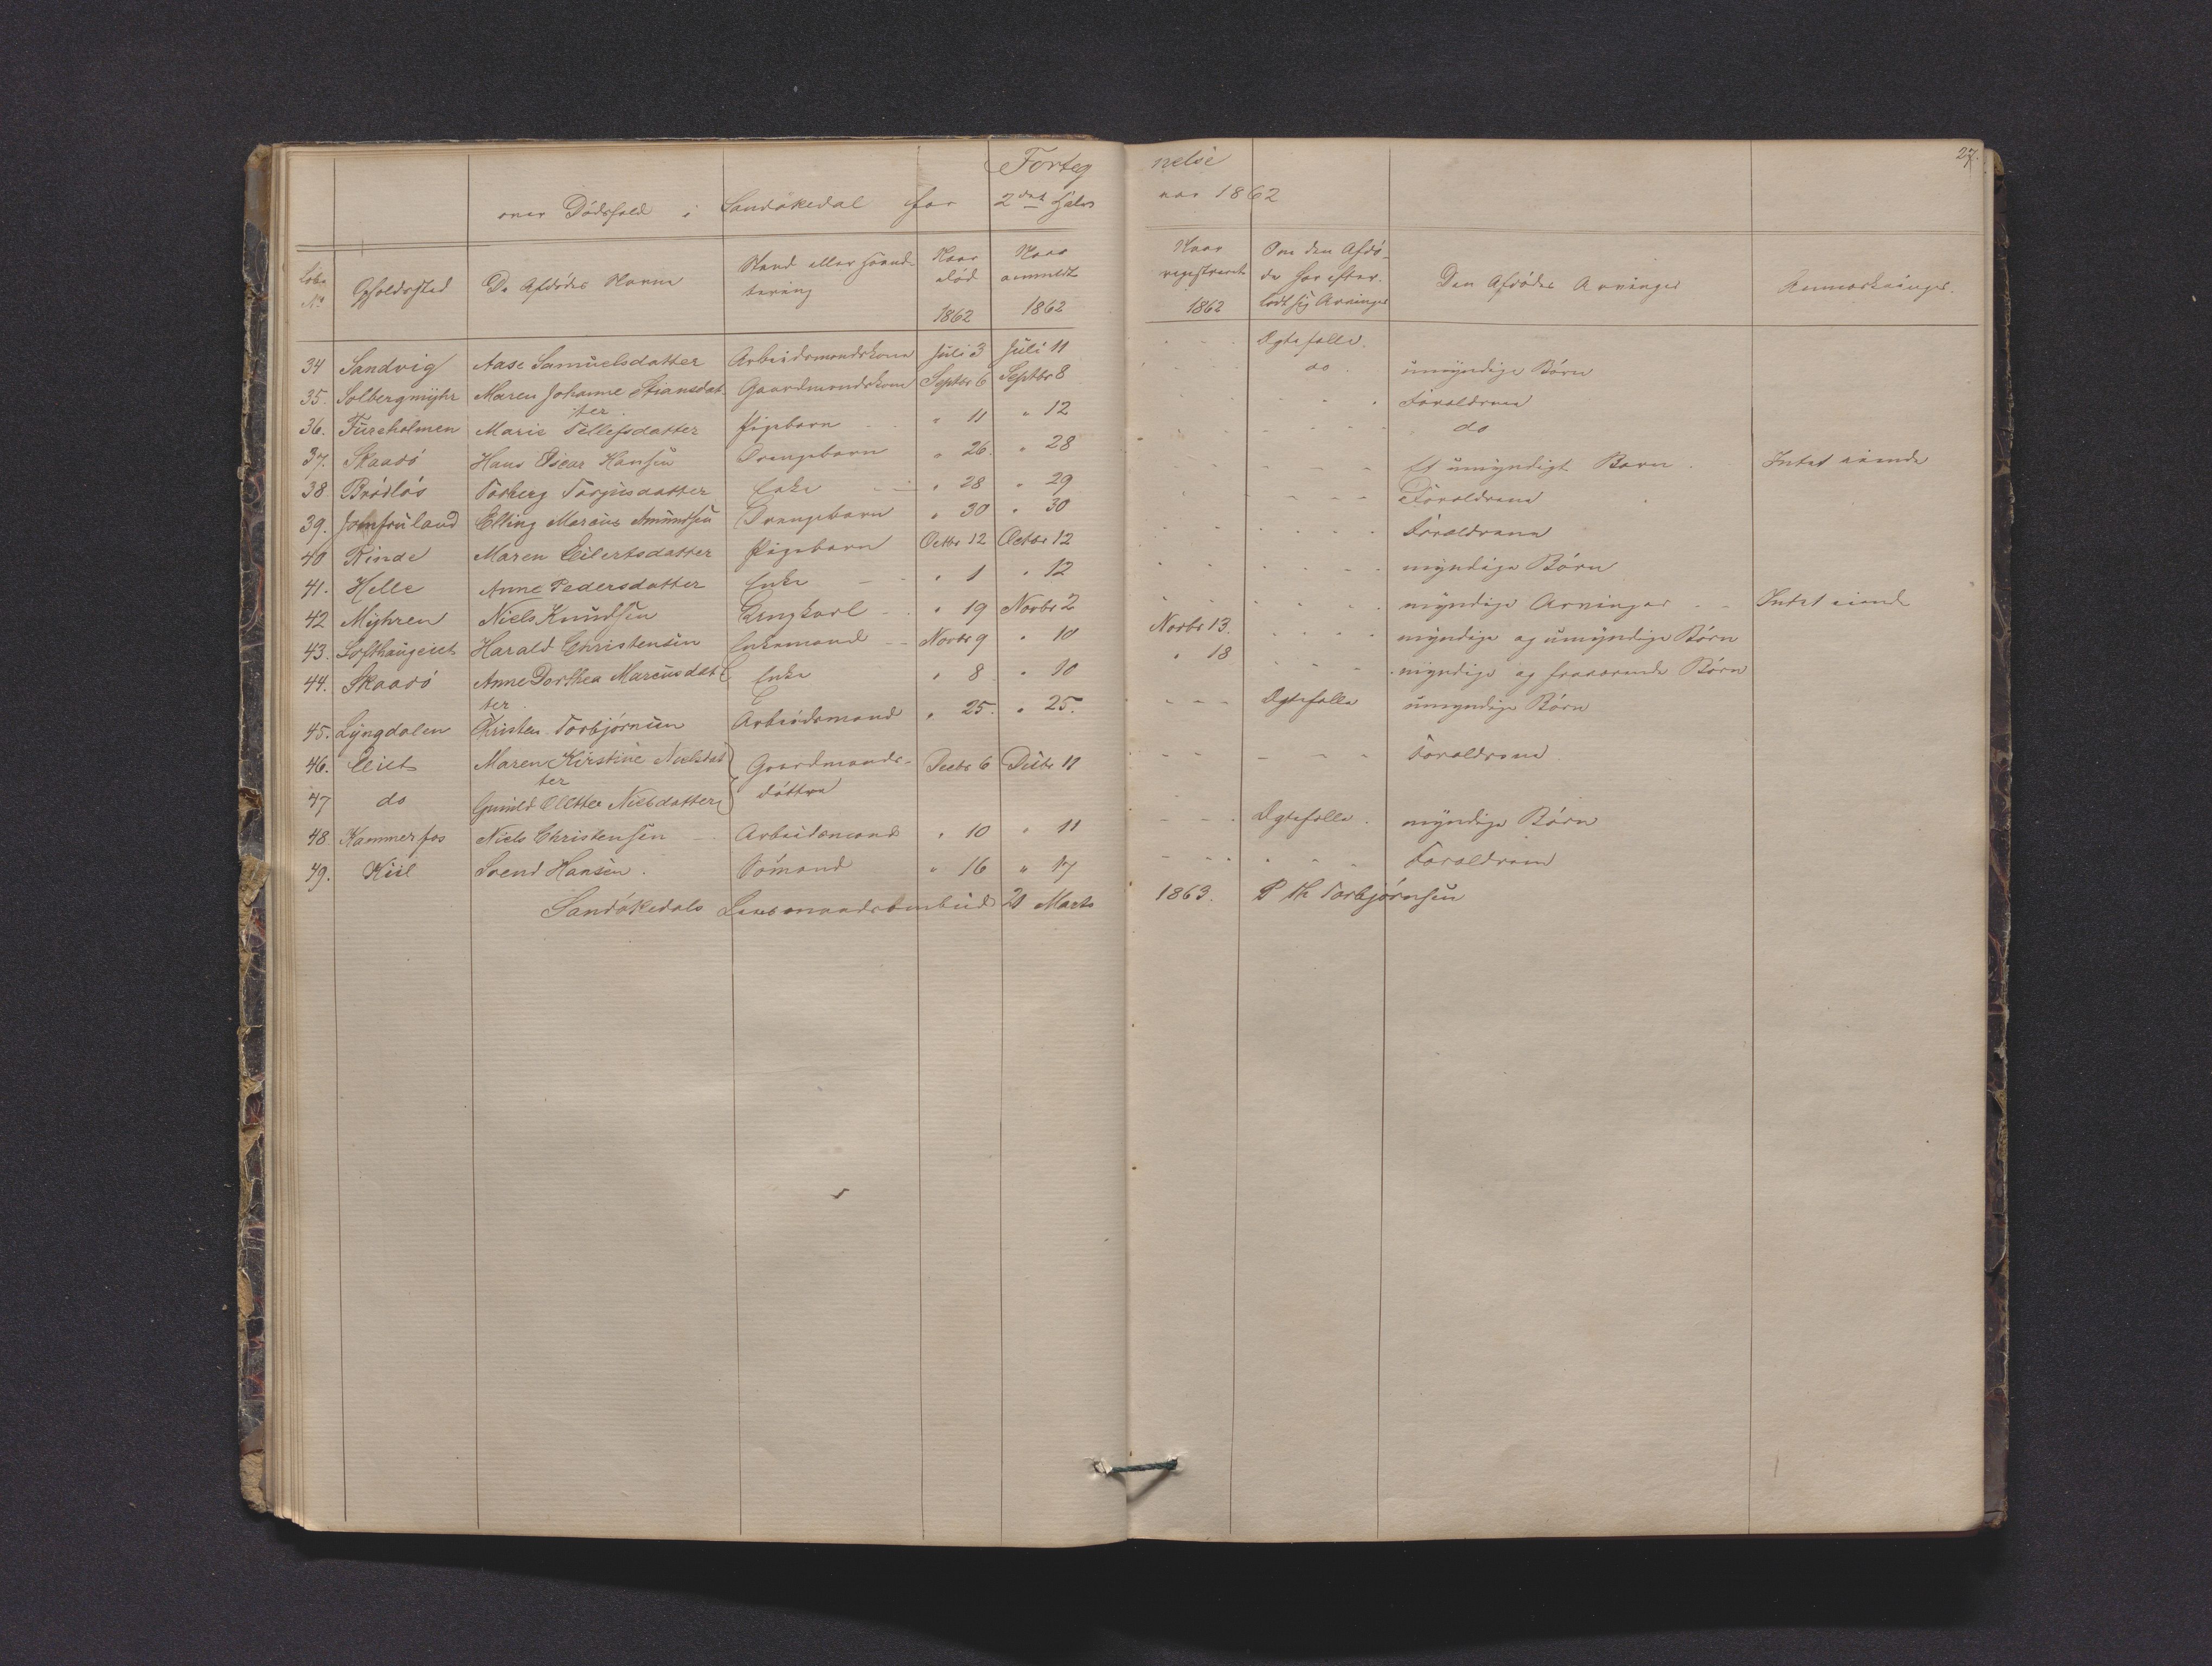 Fortegnelse
27.
over Dödsfald i Sandökedal for 2det Halvaar 1862
Löbe No
Opholdssted
De Afdödes Navne
Stand eller Haandtering
Naar död 1862
Naar anmeldt 1862
Naar registreret 1862
Om den Afdöde har efterladt sig Arvinger
Den Afdödes Arvinger
Anmærkninger.
34 Sandvig Aase Samuelsdatter Arbeidsmandskone Juli 3 Juli 11 - - Ægtefælle.
35. Solbergmyhr Maren Johanne Stiansdatter. Gaardmandskone Septbr 6 Septbr 8 - - - do. umyndige Börn
36. Fureholmen Marie Tellefsdatter Pigebarn - " 11 " 12 - - - Forældrene
37. Skaadö Hans Oscar Hansen Drengebarn " 26. " 28 - - - do
38 Brödlös Torberg Torjusdatter Enke - - " 28 " 29 - - - Et umyndigt Barn. Intet eiende
39. Jomfruland Elling Marcus Amundsen Drengebarn " 30 " 30 - - - Forældrene
40 Rinde Maren Eilertsdatter Pigebarn Octbr 12 Octbr 12 - - - Forældrene
41. Helle Anne Pedersdatter Enke - - " 1 " 12 - - - myndige Börn
42 Myhren Niels Knudsen Ungkarl - " 19 Novbr 2 - - - myndige Arvinger - - Intet eiende
43. Lofthaugeiet Harald Christensen Enkemand - - Novbr 9 " 10 Novbr 13. - - - myndige og umyndige Börn
44. Skaadö Anne Dorthea Marcusdatter. Enke " 8 " 10 " 18 - - - myndige og fraværende Börn
45. Lyngdalen Christen Torbjörnsen Arbeidsmand " 25. " 25. - - - Ægtefælle umyndige Börn
46. Eiet Maren Kirstine Nielsdatter Gaardmands- Decbr 6 Decbr 11 - - - Forældrene.
47 do Gunild Olettea Nielsdatter döttre
48. Kammerfos Niels Christensen - Arbeidsmand " 10 " 11 - - - Ægtefælle. myndige Börn
49. Kiil Svend Hansen. Sömand " 16 " 17 - - - Forældrene
Sandökedals Lensmandsombud 20 Marts 1863. P Th Torbjörnsen